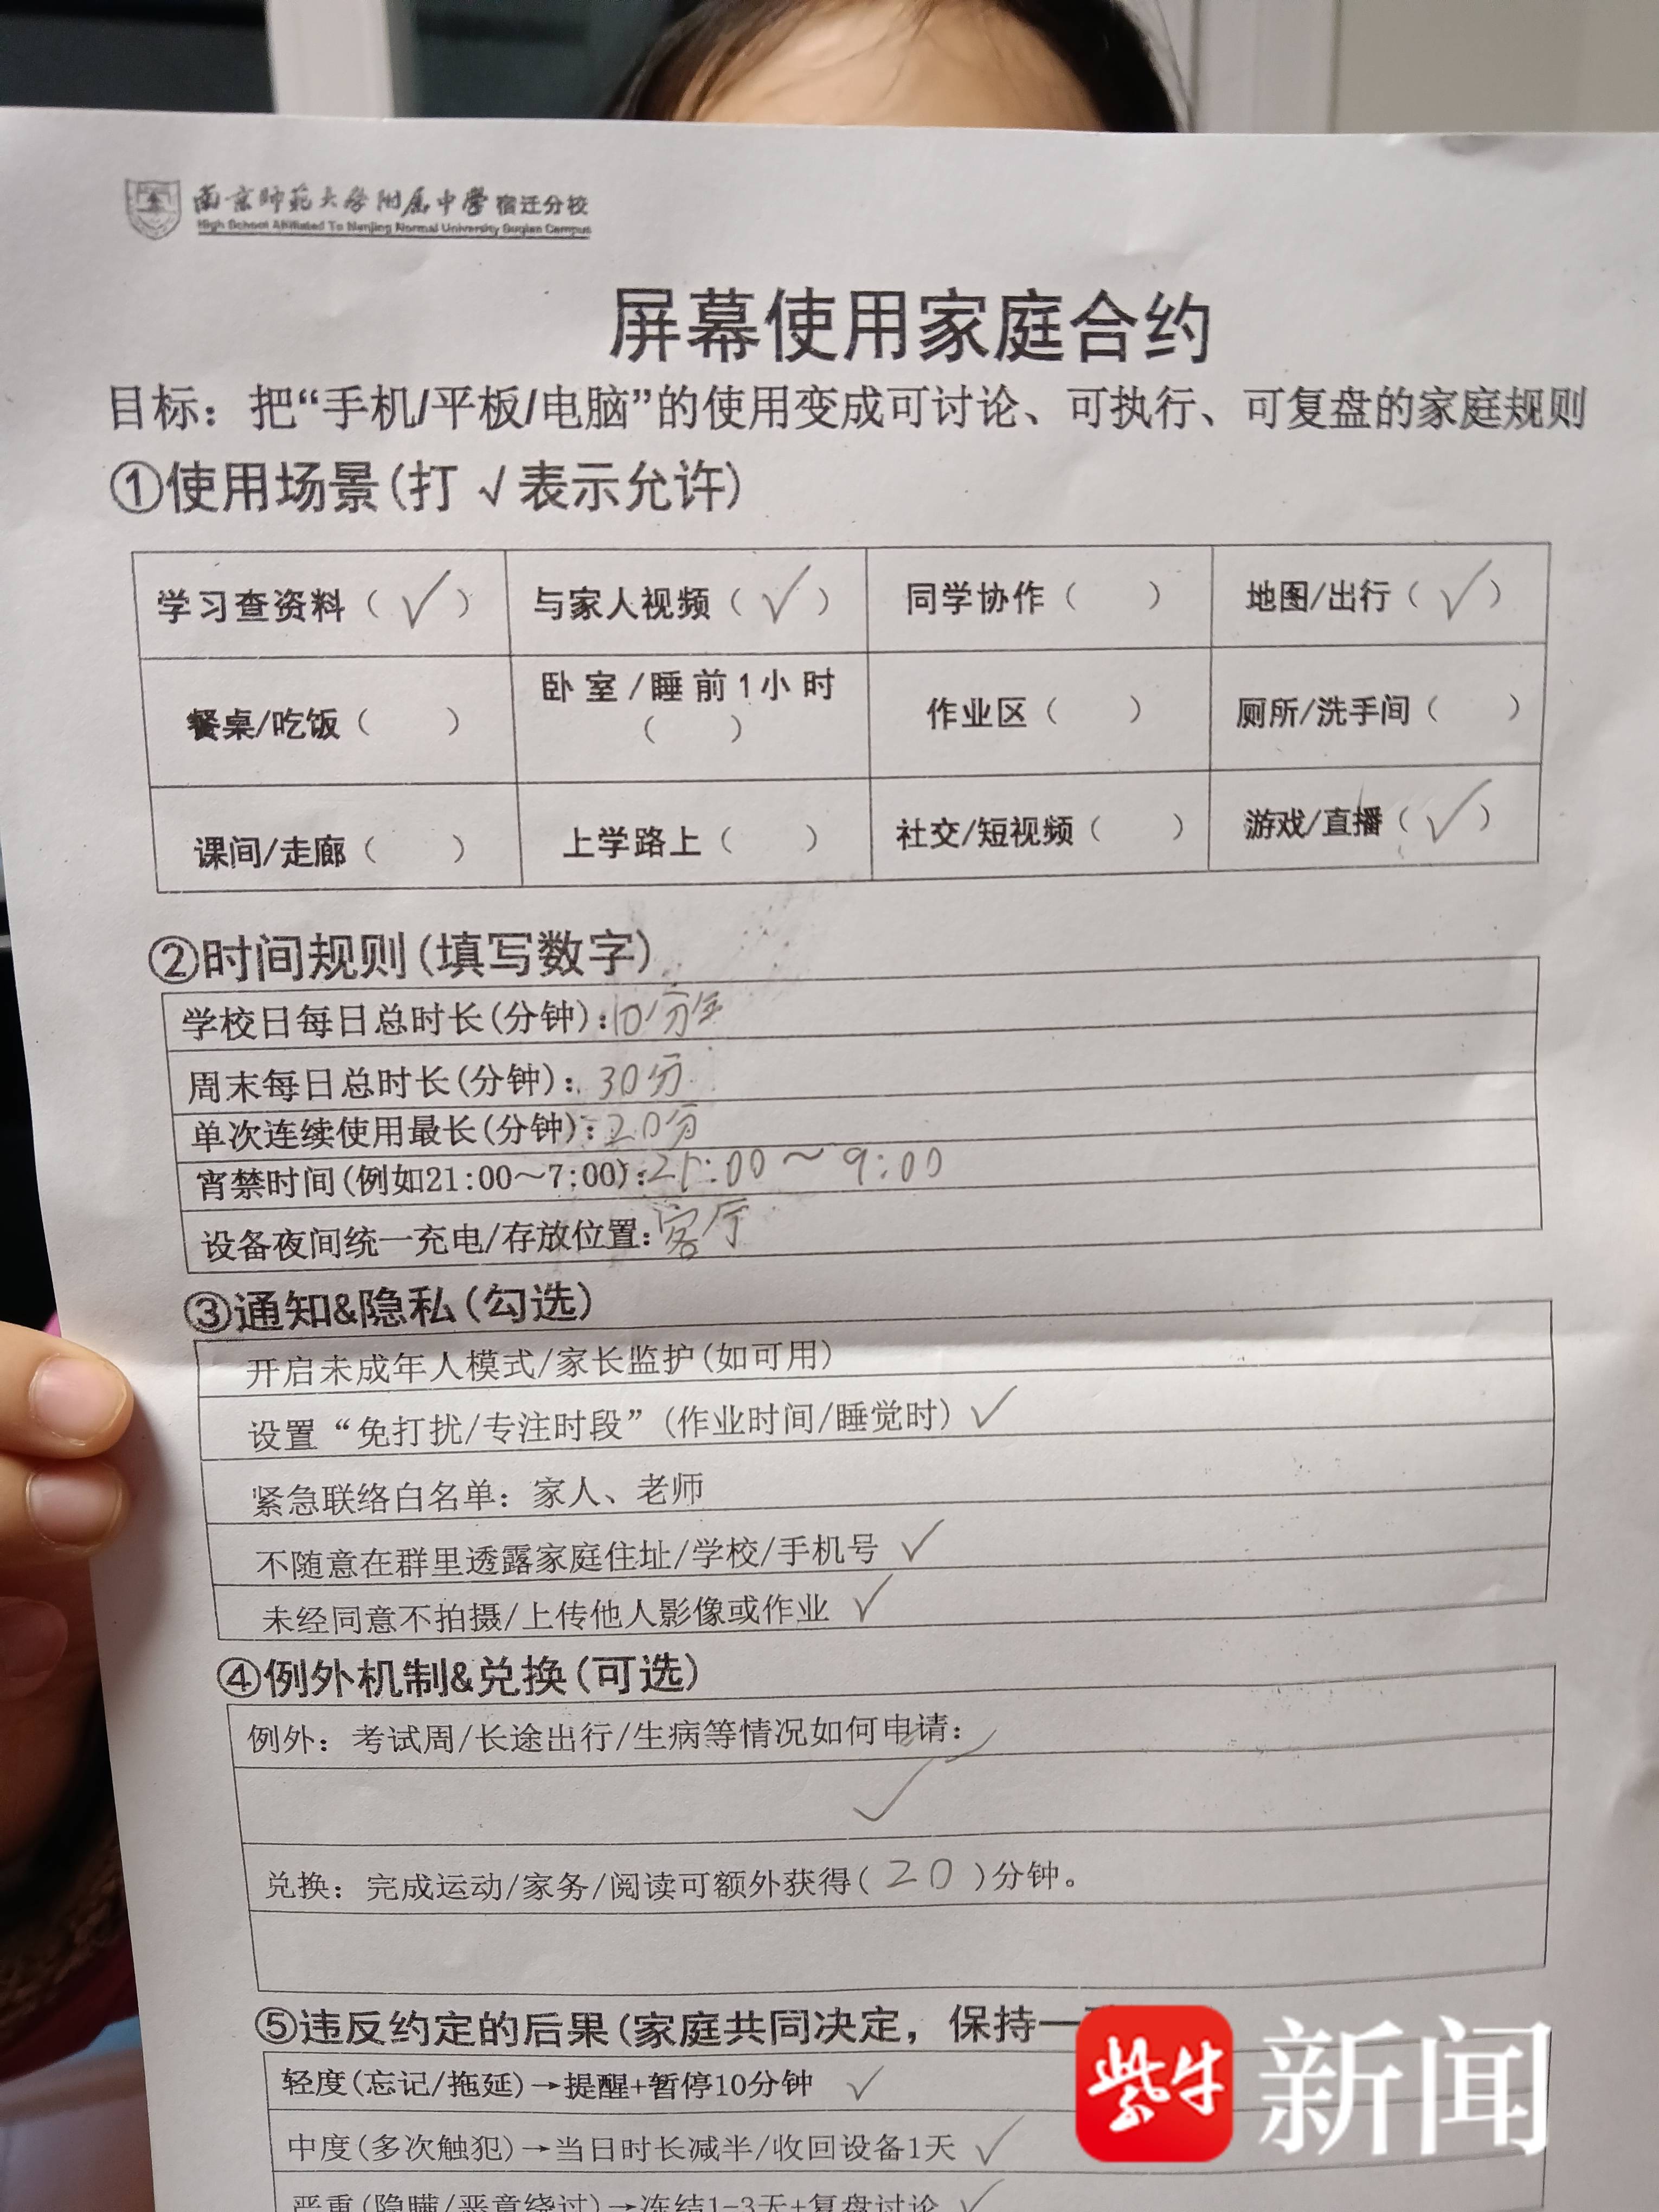 南京师范大学附属中学宿迁分校
High School Affiliated To Nanjing Normal University Suqian Campus
屏幕使用家庭合约
目标：把“手机/平板/电脑”的使用变成可讨论、可执行、可复盘的家庭规则
①使用场景(打√表示允许)
学习查资料（√） 与家人视频（√） 同学协作（ ） 地图/出行（√）
餐桌/吃饭（ ） 卧室/睡前1小时（ ） 作业区（ ） 厕所/洗手间（ ）
课间/走廊（ ） 上学路上（ ） 社交/短视频（ ） 游戏/直播（√）
②时间规则(填写数字)
学校日每日总时长(分钟)：10分钟
周末每日总时长(分钟)：30分
单次连续使用最长(分钟)：20分
宵禁时间(例如21:00～7:00)：21:00～9:00
设备夜间统一充电/存放位置：客厅
③通知&隐私(勾选)
开启未成年人模式/家长监护(如可用)
设置“免打扰/专注时段”(作业时间/睡觉时)√
紧急联络白名单：家人、老师
不随意在群里透露家庭住址/学校/手机号√
未经同意不拍摄/上传他人影像或作业√
④例外机制&兑换(可选)
例外：考试周/长途出行/生病等情况如何申请：
√
兑换：完成运动/家务/阅读可额外获得(20)分钟。
⑤违反约定的后果(家庭共同决定，保持一
轻度(忘记/拖延)→提醒+暂停10分钟√
中度(多次触犯)→当日时长减半/收回设备1天√
严重(隐瞒/恶意绕过)→冻结1-3天+复盘讨论√
紫牛新闻